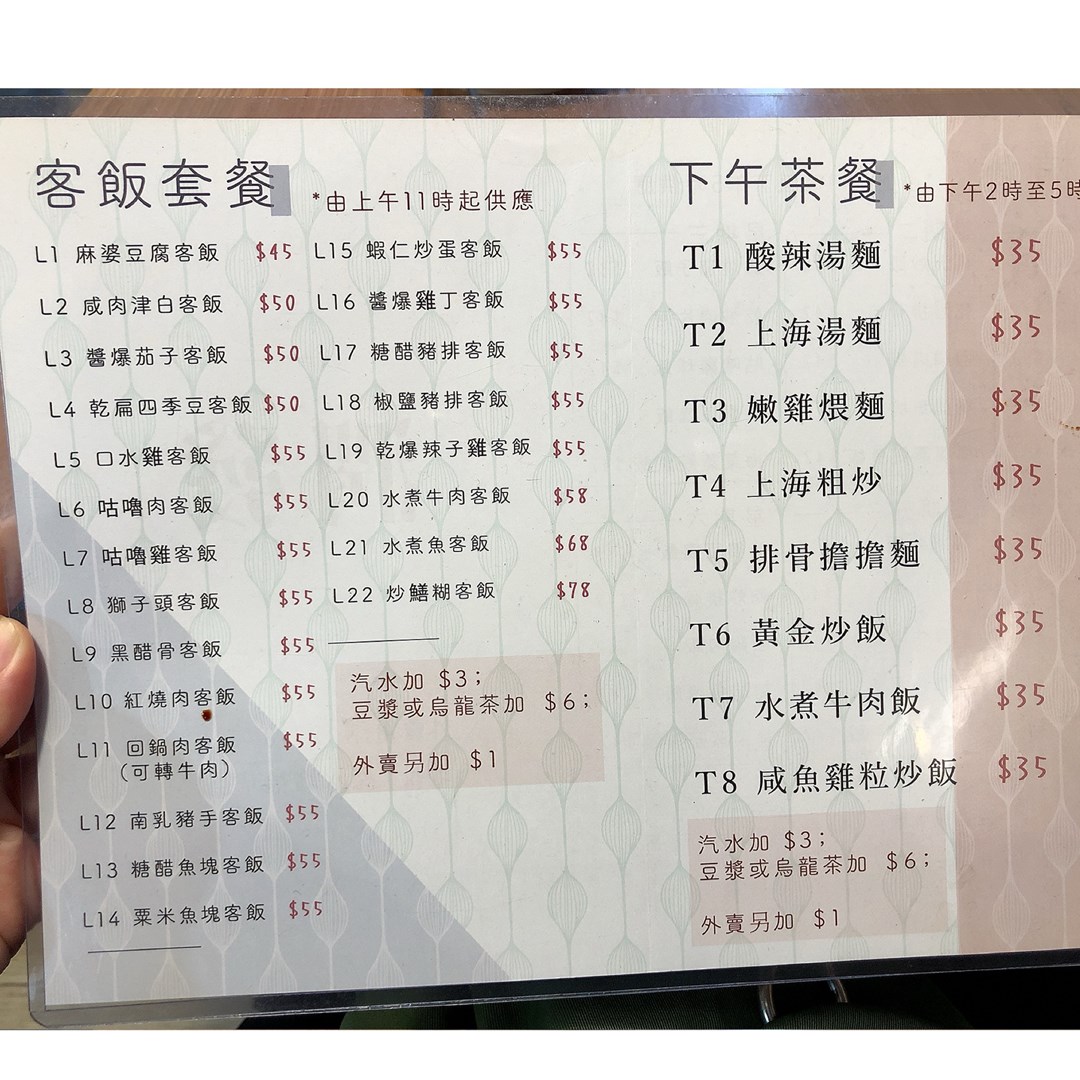 客飯套餐 *由上午11時起供應
L1 麻婆豆腐客飯 $45
L2 咸肉津白客飯 $50
L3 醬爆茄子客飯 $50
L4 乾扁四季豆客飯 $50
L5 口水雞客飯 $55
L6 咕嚕肉客飯 $55
L7 咕嚕雞客飯 $55
L8 獅子頭客飯 $55
L9 黑醋骨客飯 $55
L10 紅燒肉客飯 $55
L11 回鍋肉客飯 $55
(可轉牛肉)
L12 南乳豬手客飯 $55
L13 糖醋魚塊客飯 $55
L14 粟米魚塊客飯 $55
L15 蝦仁炒蛋客飯 $55
L16 醬爆雞丁客飯 $55
L17 糖醋豬排客飯 $55
L18 椒鹽豬排客飯 $55
L19 乾爆辣子雞客飯 $55
L20 水煮牛肉客飯 $58
L21 水煮魚客飯 $68
L22 炒鱔糊客飯 $78
汽水加 $3；
豆漿或烏龍茶加 $6；
外賣另加 $1
下午茶餐 *由下午2時至5時
T1 酸辣湯麵 $35
T2 上海湯麵 $35
T3 嫩雞煨麵 $35
T4 上海粗炒 $35
T5 排骨擔擔麵 $35
T6 黃金炒飯 $35
T7 水煮牛肉飯 $35
T8 咸魚雞粒炒飯 $35
汽水加 $3；
豆漿或烏龍茶加 $6；
外賣另加 $1